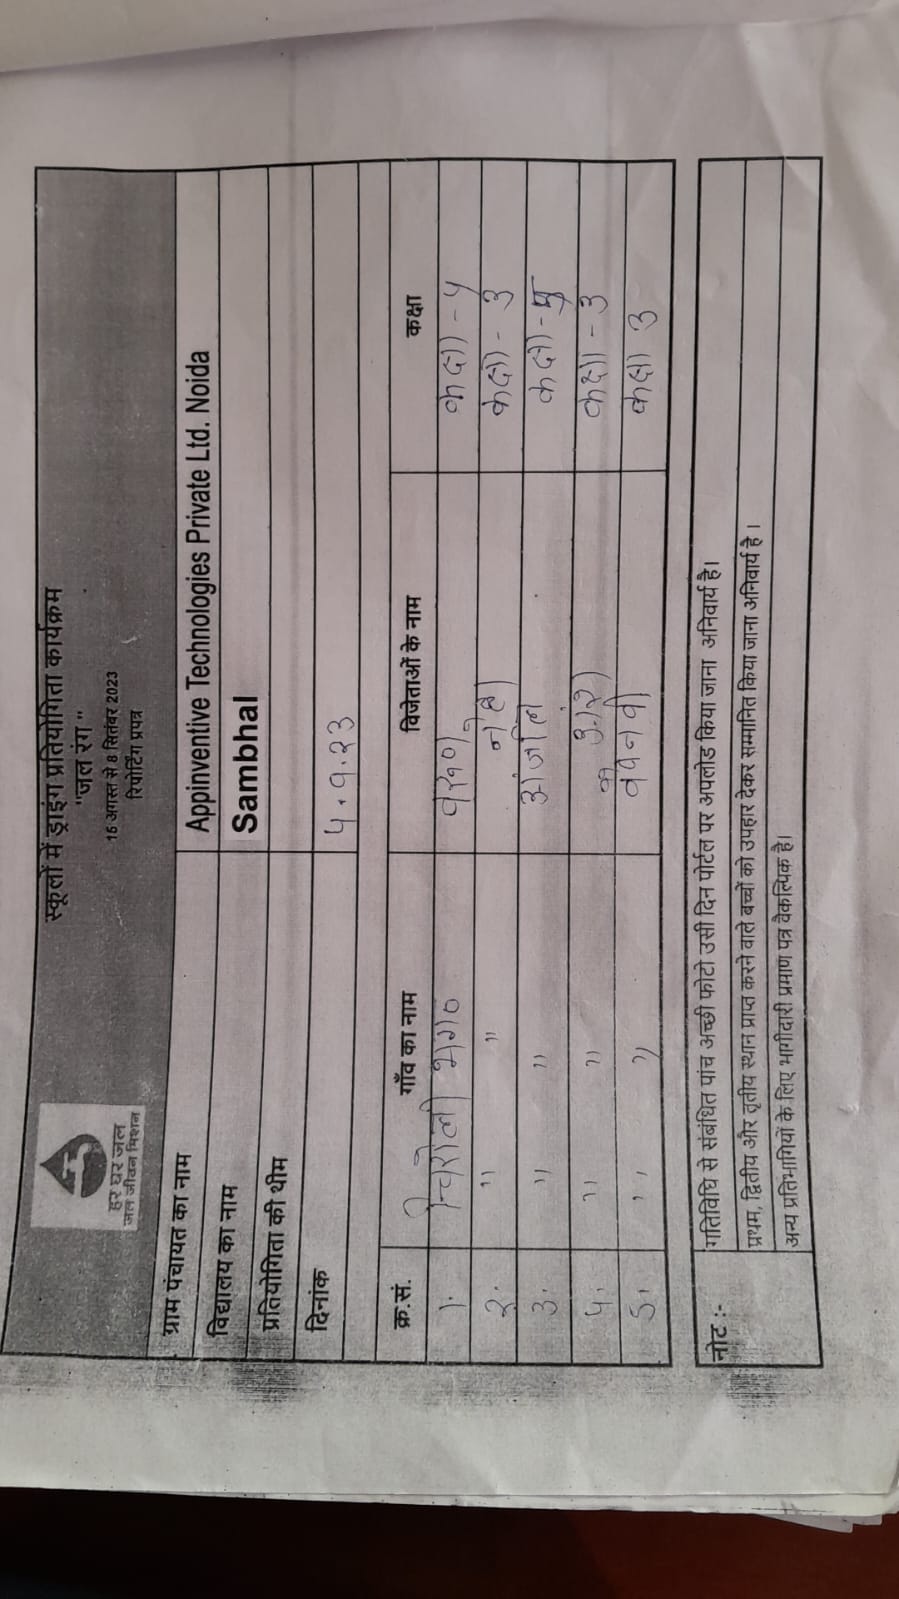 हर घर जल
जल जीवन मिशन
स्कूलों में ड्राइंग प्रतियोगिता कार्यक्रम
"जल रंग"
16 अगस्त से 8 सितंबर 2023
रिपोर्टिंग प्रपत्र
ग्राम पंचायत का नाम Appinventive Technologies Private Ltd. Noida
विद्यालय का नाम Sambhal
प्रतियोगिता की थीम
दिनांक 4.9.23
क्र.सं. गाँव का नाम विजेताओं के नाम कक्षा
1. कक्षा - 4
2. " " नेहा कक्षा - 3
3. " " अंजलि कक्षा -
4. " " कक्षा - 3
5. " " कक्षा 3
नोट :- गतिविधि से संबंधित पांच अच्छी फोटो उसी दिन पोर्टल पर अपलोड किया जाना अनिवार्य है।
प्रथम, द्वितीय और तृतीय स्थान प्राप्त करने वाले बच्चों को उपहार देकर सम्मानित किया जाना अनिवार्य है।
अन्य प्रतिभागियों के लिए भागीदारी प्रमाण पत्र वैकल्पिक है।